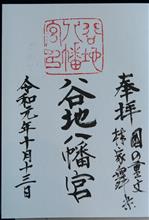 奉拝
国の重文
林家舞楽
谷地八幡宮
谷地八幡宮印
令和元年十月十三日